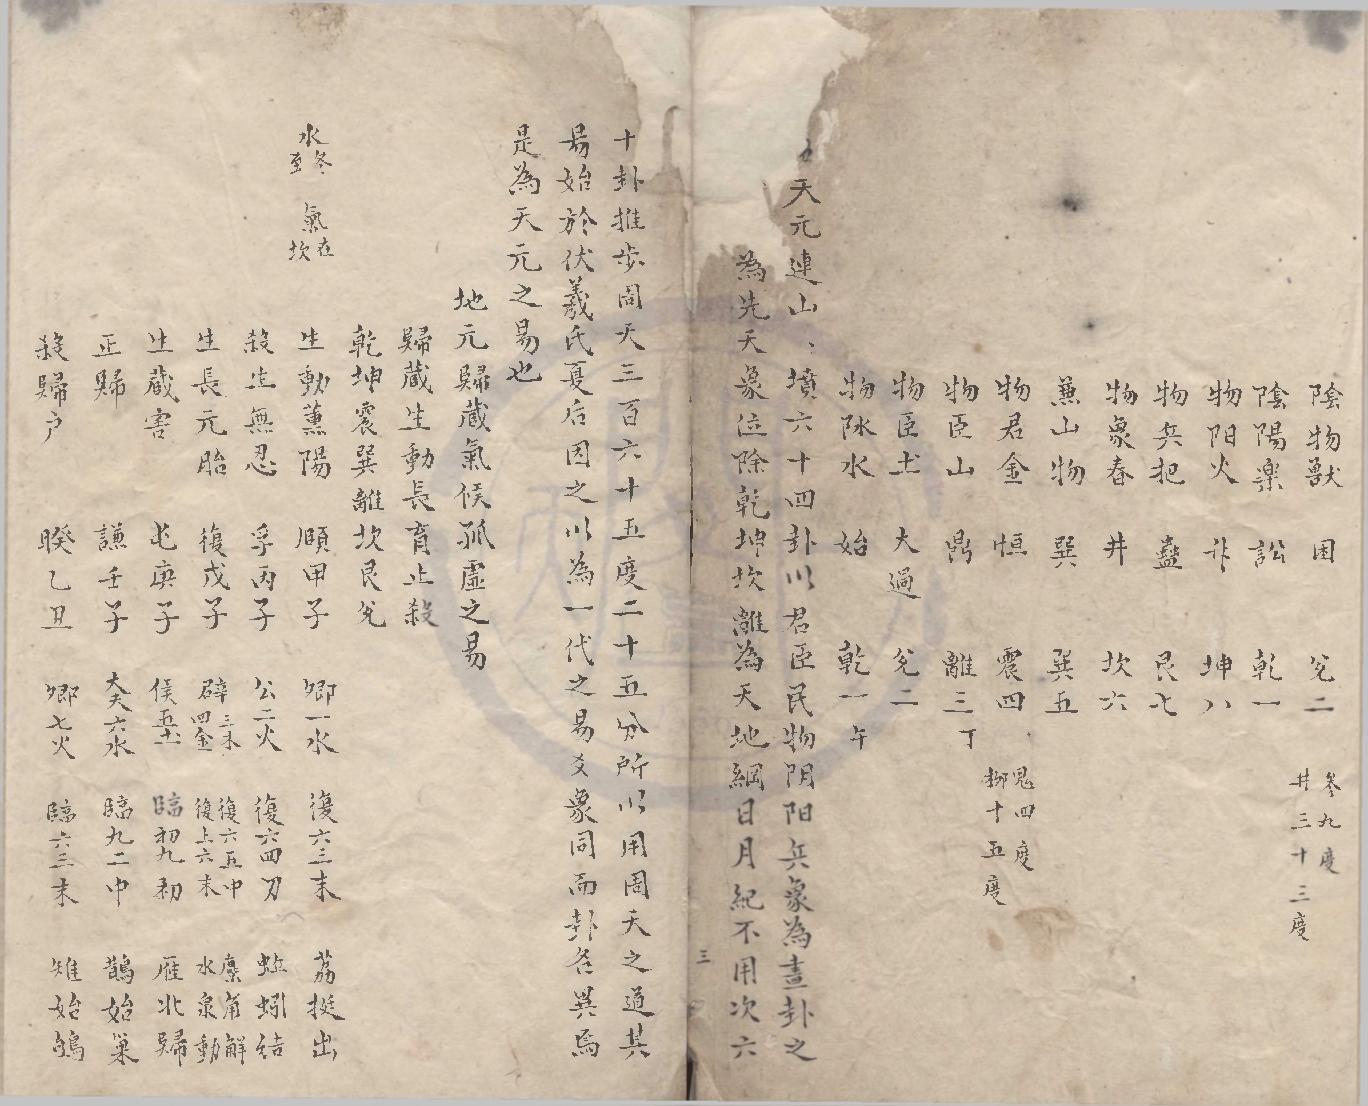 陰物獸　困　兌二　參九度
井三十三度
陰陽樂　訟　乾一
物阳火　升　坤八
物兵犯　蠱　艮七
物象春　井　坎六
兼山物　巽　巽五
物君金　恒　震四　鬼四度
柳十五度
物臣山　鼎　離三丁
物臣土　大過　兌二
物阥水　始　乾一午
天元連山、墳六十四卦以君臣民物阴阳兵象為畫卦之
為先天象位除乾坤坎離為天地綱日月紀不用次六
十卦推步周天三百六十五度二十五分所以用周天之道其
易始於伏羲氏夏后因之以為一代之易爻象同而卦各異焉
是為天元之易也
地元歸藏氣候孤虛之易
歸藏生動長育止殺
乾坤震巽離坎艮兌
水冬至　氣在坎
生動薰陽　頤甲子　卿一水　復六三末　荔挺出
殺生無忍　孚丙子　公二火　復六四刀　蚯蚓结
生長元胎　復戊子　辟三木四金　復六五中復上六末　麋角觧水泉動
生藏害　屯庚子　侯五土　臨初九初　雁北歸
正歸　謙壬子　大夫六水　臨九二中　鵲始巢
殺歸户　睽乙丑　卿七火　臨六三末　雉始鴝
三